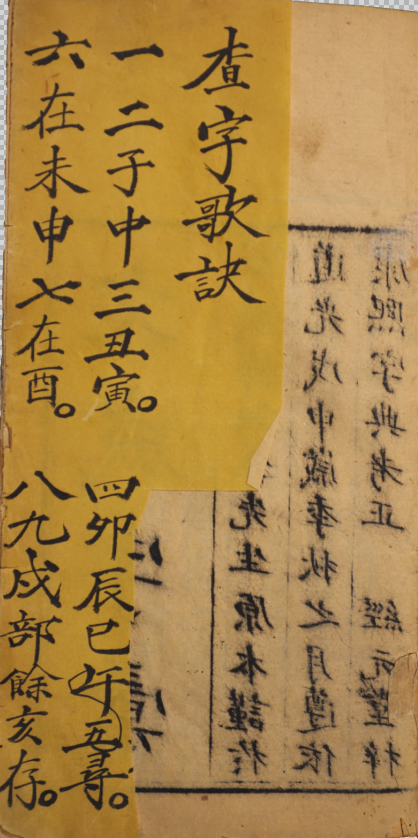 查字歌訣
一二子中三丑寅。
四卯辰巳午五尋。
六在未申七在酉。
八九戍部餘亥存。
康熙字典考正 經元堂梓
道光戊申歲季秋之月遵依
先生原本謹於